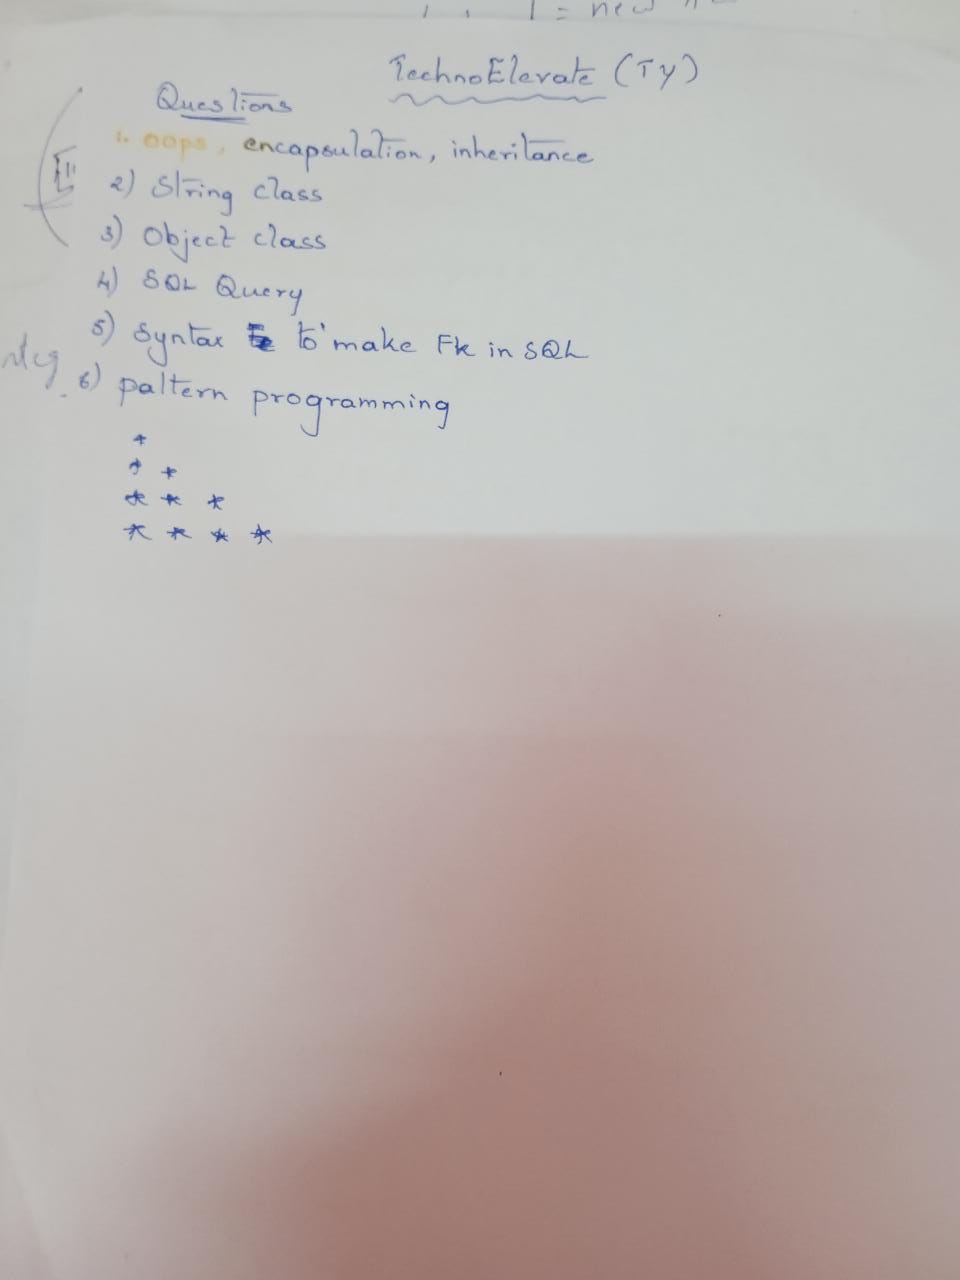 = new
TechnoElevate (TY)
Questions
1. oops, encapsulation, inheritance
2) String class
3) Object class
4) SQL Query
5) Syntax to make Fk in SQL
6) pattern programming
*
* *
* * *
* * * *